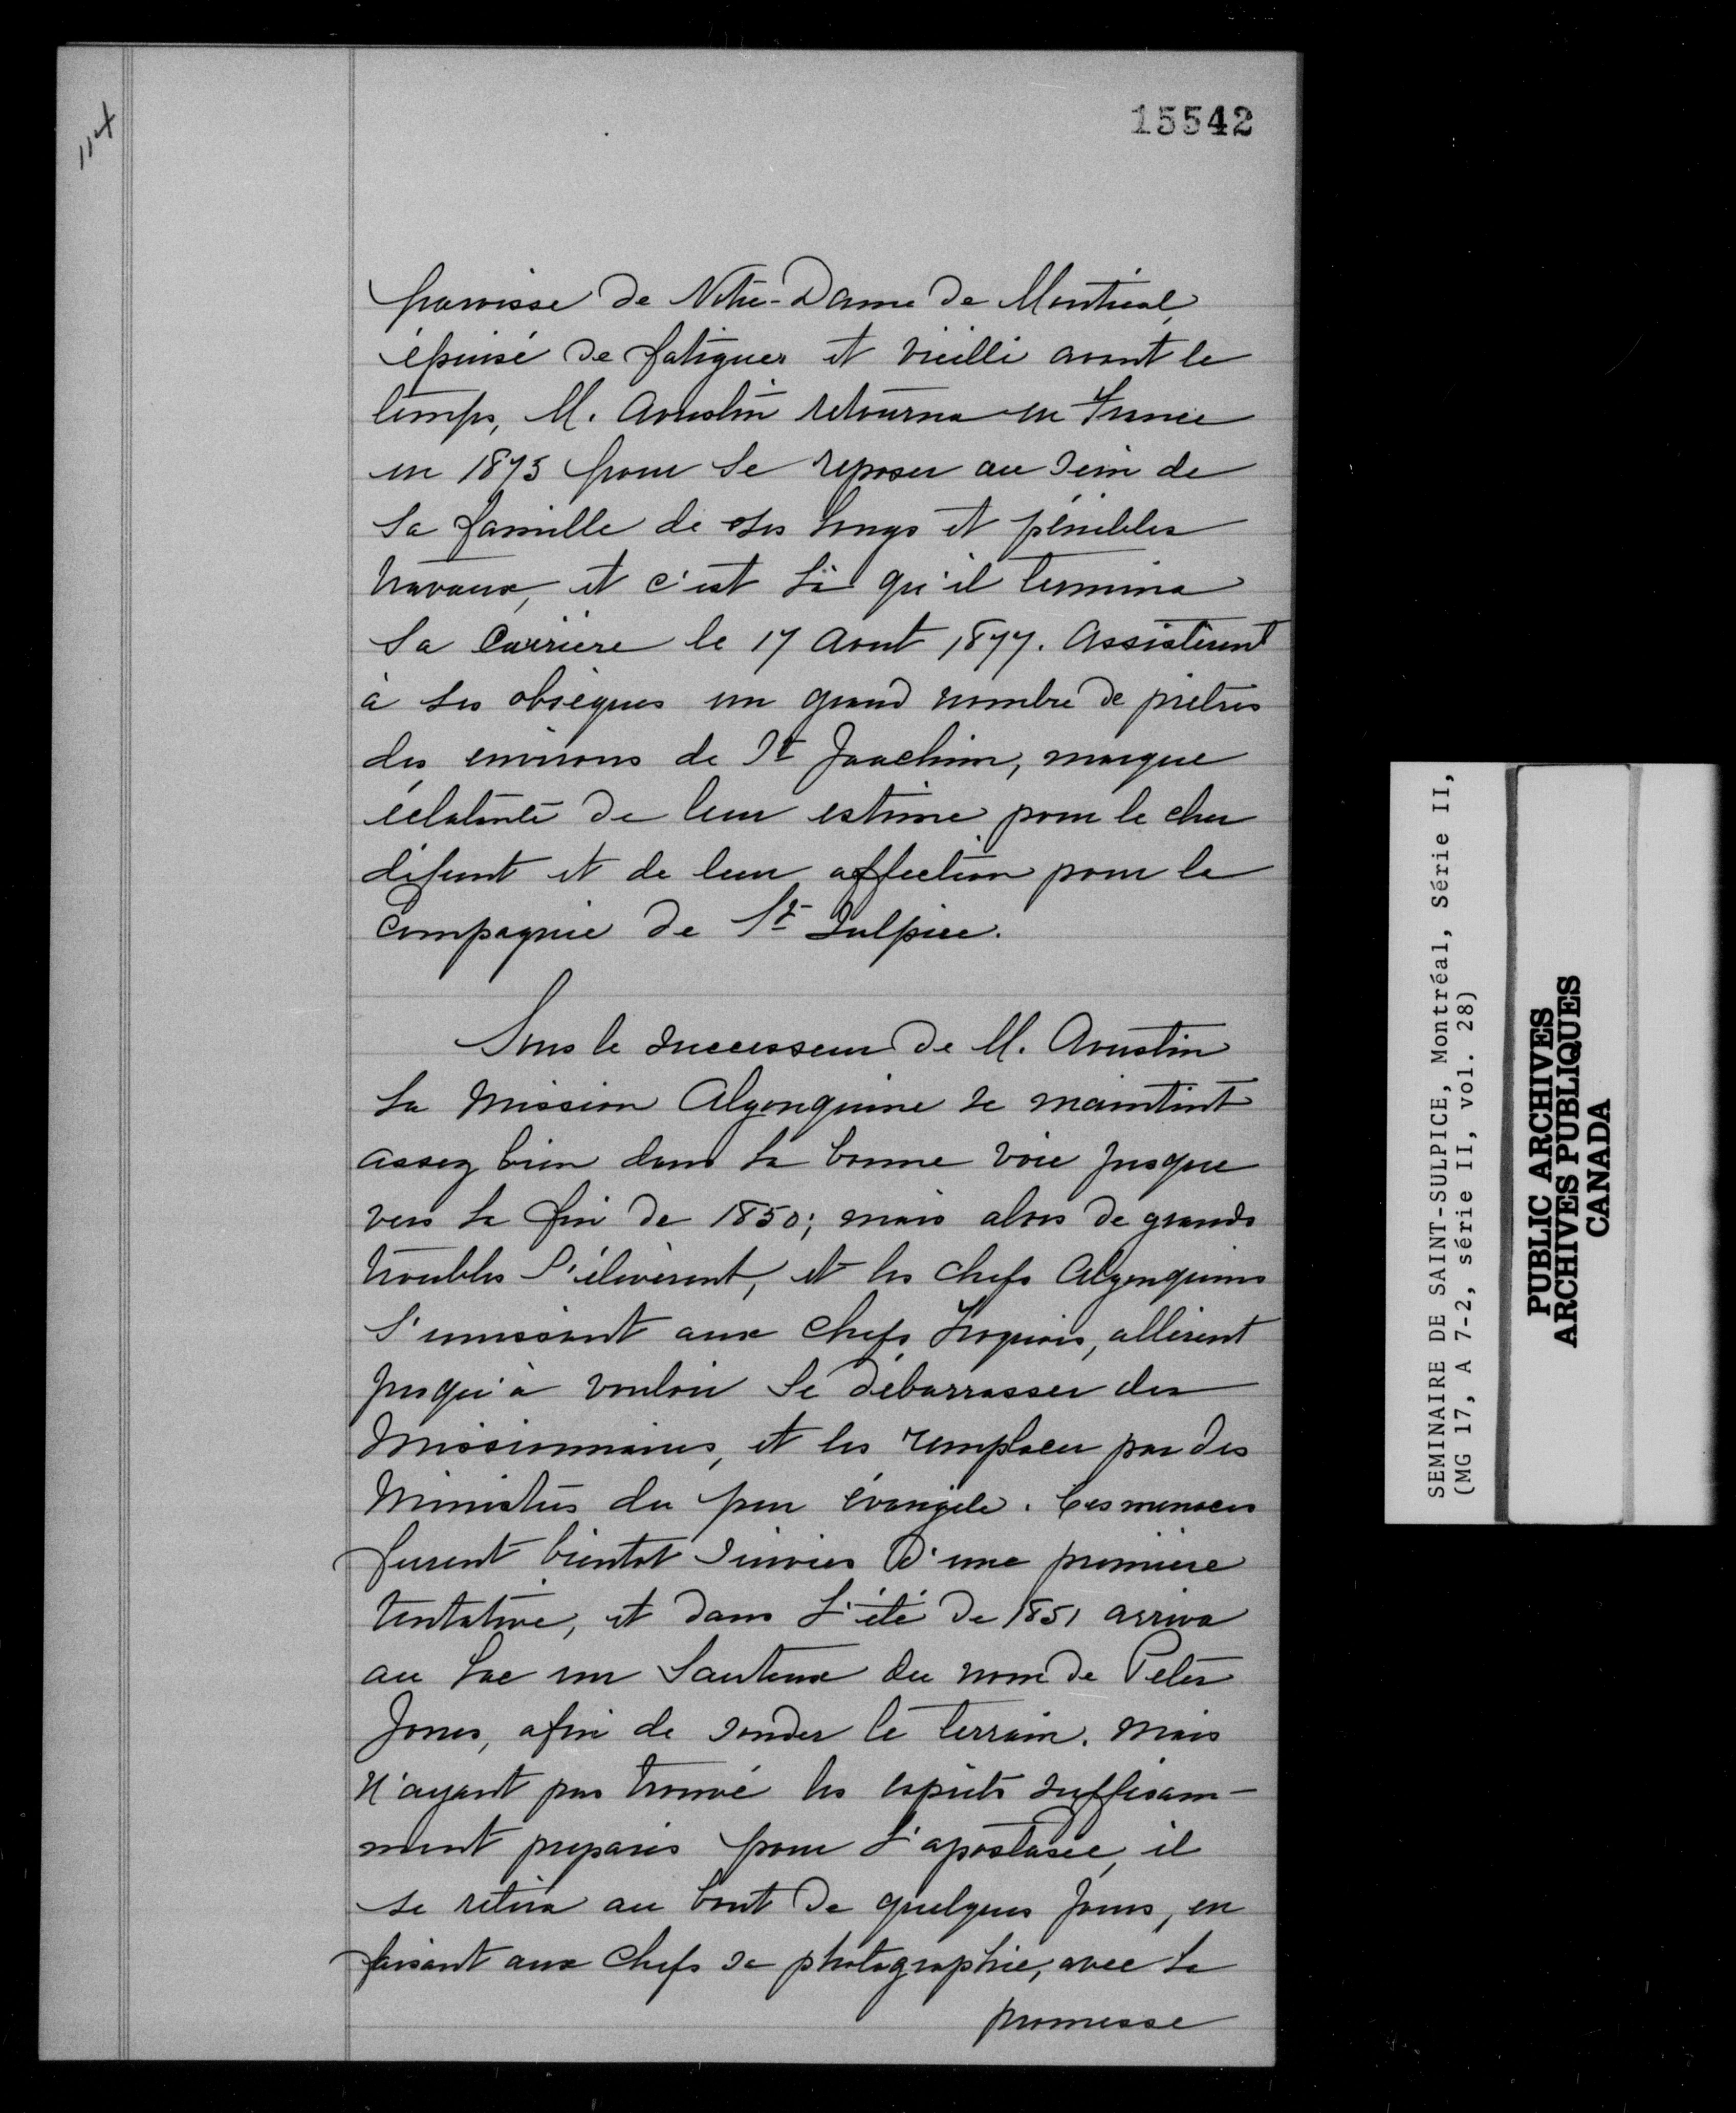 114
15542
paroisse de Notre-Dame de Montréal,
épuisé de fatigues et vieilli avant le
temps, M. Aoustin retourna en France
en 1875 pour se reposer au sein de
sa famille de ses longs et pénibles
travaux, et c'est là qu'il termina
sa carrière le 17 Aout 1877. Assistèrent
à ses obsèques un grand nombre de prêtres
des environs de St Joachim, marque
éclatante de leur estime pour le cher
défunt et de leur affection pour la
Compagnie de St Sulpice.
Sous le successeur de M. Aoustin
la Mission Algonquine se maintint
assez bien dans la bonne voie jusque
vers la fin de 1850; mais alors de grands
troubles s'élevèrent, et les chefs Algonquins
s'unissant aux chefs Iroquois, allèrent
jusqu'à vouloir se débarrasser des
Missionnaires, et les remplacer par des
Ministres du pur évangile. Ces menaces
furent bientot suivies d'une première
tentative, et dans l'été de 1851 arriva
au Lac un Sauteux du nom de Peter
Jones, afin de sonder le terrain. Mais
n'ayant pas trouvé les esprits suffisam-
ment préparés pour l'apostasie, il
se retira au bout de quelques jours, en
faisant aux chefs sa photographie, avec la
promesse
SEMINAIRE DE SAINT-SULPICE, Montréal, Série II,
(MG 17, A 7-2, série II, vol. 28)
PUBLIC ARCHIVES
ARCHIVES PUBLIQUES
CANADA